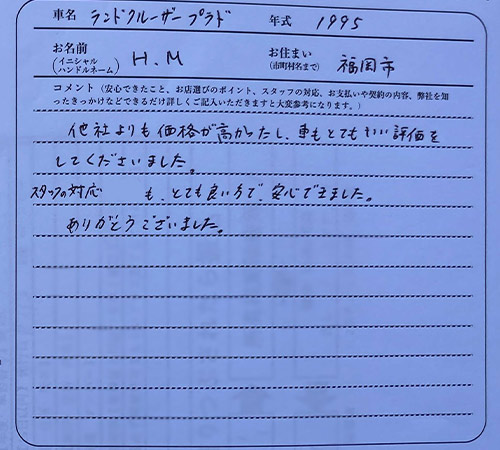 車名 ランドクルーザー プラド 年式 1995
お名前 (イニシャル ハンドルネーム) H.M お住まい (市町村名まで) 福岡市
コメント (安心できたこと、お店選びのポイント、スタッフの対応、お支払いや契約の内容、弊社を知
ったきっかけなどできるだけ詳しくご記入いただきますと大変参考になります。)
他社よりも価格が高かったし、車もとてもいい評価を
してくださいました。
スタッフの対応 も、とても良い方で、安心できました。
ありがとうございました。